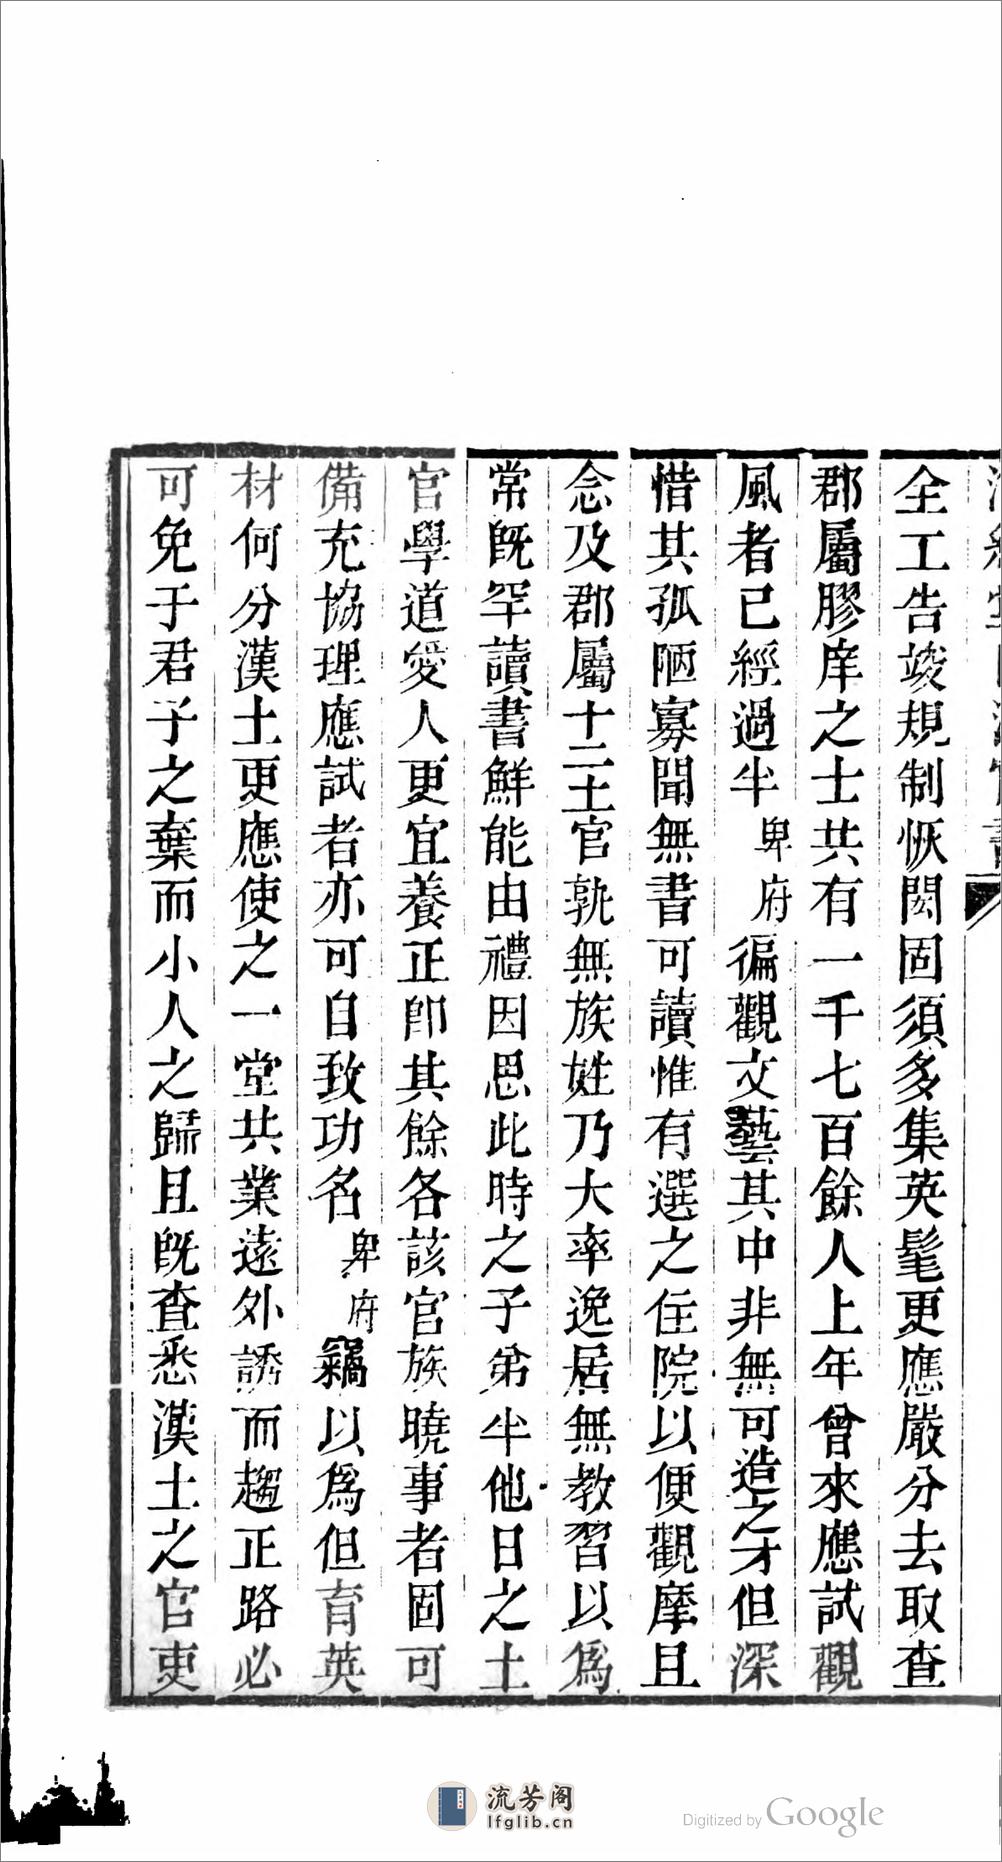 全工告竣規制恢閎固須多集英髦更應嚴分去取查
郡屬膠庠之士共有一千七百餘人上年曾來應試觀
風者已經過半卑府徧觀文藝其中非無可造之才但深
惜其孤陋寡聞無書可讀惟有選之住院以便觀摩且
念及郡屬十二土官孰無族姓乃大率逸居無教習以爲
常既罕讀書鮮能由禮因思此時之子弟半他日之土
官學道愛人更宜養正卽其餘各該官族曉事者固可
備充協理應試者亦可自致功名卑府竊以爲但育英
材何分漢土更應使之一堂共業遠外誘而趨正路必
可免于君子之棄而小人之歸且既查悉漢土之官吏
流芳阁
lfglib.cn
Digitized by Google